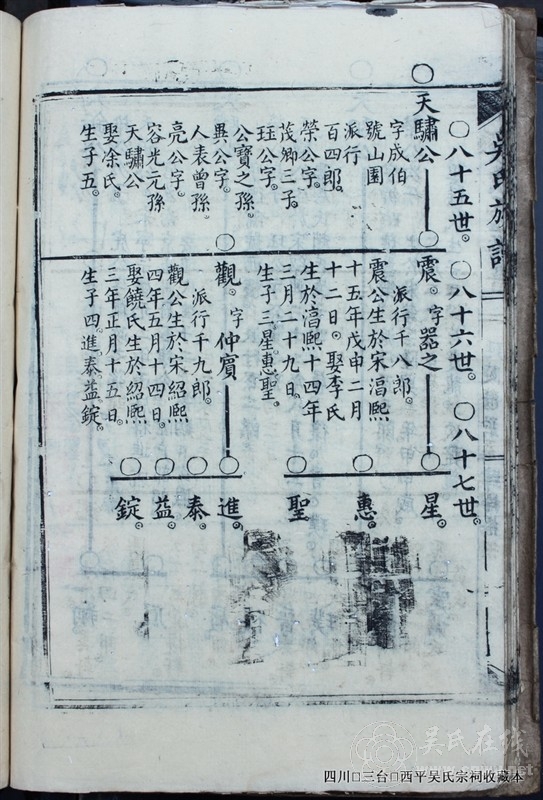 吳氏族譜
○八十五世。○八十六世。○八十七世。
○天驌公
字成伯
號山園
派行
百四郎。
榮公字。
茂卿三子。
珏公字。
公寶之孫。
異公字。
人表曾孫。
亮公字。
容光元孫
天驌公
娶凃氏。
生子五。
○震。字器之
派行千八郎。
震公生於宋淳熙
十五年戊申二月
十二日。娶李氏
生於淳熙十四年
三月二十九日。
生子三。星惠聖。
○觀。字仲賓
派行千九郎。
觀公生於宋紹熙
四年五月十四日。
娶饒氏生於紹熙
三年正月十五日。
生子四。進泰益錠。
○星。
○惠。
○聖
○進。
○泰。
○益。
○錠。
吴氏在线
四川□三台□西平吴氏宗祠收藏本